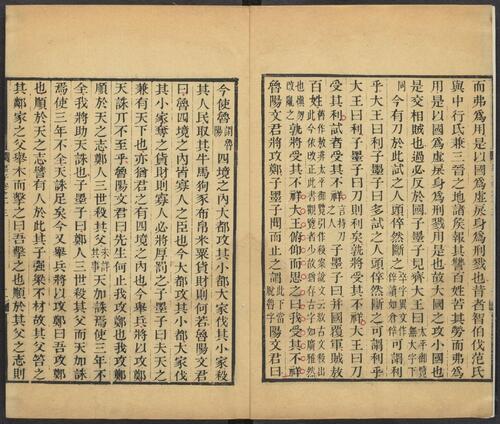 而弗爲用是以國爲虛戾身爲刑戮也昔者智伯伐范氏
與中行氏兼三晉之地諸矦報其讐百姓苦其勞而弗爲
用是以國爲虛戾身爲刑戮用是也故大國之攻小國也
是交相賊也過必反於國子墨子見齊大王曰太平御覽無大字下
同今有刀於此試之人頭倅然斷之卒字異文作倅讀如倉卒可謂利
乎大王曰利子墨子曰多試之人頭倅然斷之可謂利乎
大王曰利子墨子曰刀則利矣孰將受其不祥大王曰刀
受其利試者受其不祥言持刀之人子墨子曰并國覆軍賊敖
百姓舊作敖非太平御覽引作殺案說文云敖古文殺出此今依改正此書觀者少故猶存古字如廣雅然
也憔勿改亂之孰將受其不祥大王俯仰而思之曰我受其不祥
魯陽文君將攻鄭子墨子聞而止之謂此下當脫魯字陽文君曰
今使魯謂魯陽四境之內大都攻其小都大家伐其小家殺
其人民取其牛馬狗豕布帛米粟貨財則何若魯陽文君
曰魯四境之內皆寡人之臣也今大都攻其小都大家伐
其小家奪之貨財則寡人必將厚罰之子墨子曰夫天之
兼有天下也亦猶君之有四境之內也今舉兵將以攻鄭
天誅亓不至乎魯陽文君曰先生何止我攻鄭也我攻鄭
順於天之志鄭人三世殺其父未詳其事天加誅焉使三年不
全我將助天誅也子墨子曰鄭人三世殺其父而天加誅
焉使三年不全天誅足矣今又舉兵將以攻鄭曰吾攻鄭
也順於天之志譬有人於此其子強梁不材故其父笞之
其鄰家之父舉木而擊之曰吾擊之也順於其父之志則